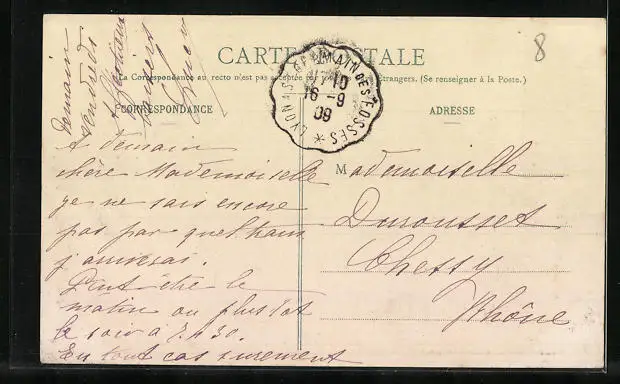 CARTE POSTALE
La Correspondance au recto n'est pas acceptée par tous les Etrangers. (Se renseigner à la Poste.)
CORRESPONDANCE
ADRESSE
8
LYON A ST GERMAIN DES FOSSES
16 - 9
09
A demain
chère Mademoiselle
je ne sais encore
pas par quel train
j'arriverai.
Peut être le
matin ou plus tot
le soir à
En tout cas surement
Demain
vendredi
Mademoiselle
Durousset
Chessy
Rhône